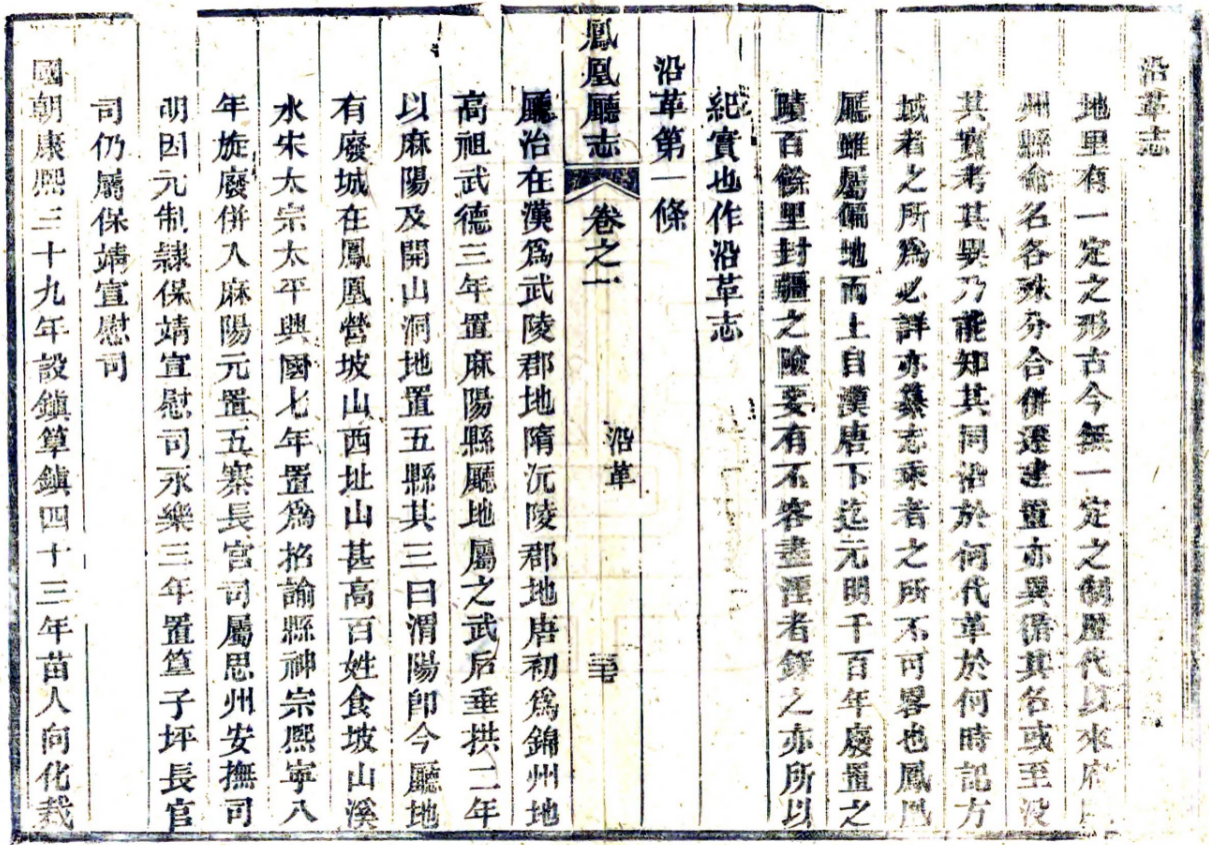 沿革志
地里有一定之形古今無一定之制歷代以來府
州縣命名各殊分合併遷建置亦異循其名或至沒
其實考其異乃能知其同沿於何代革於何時記方
域者之所為必詳亦纂志乘者之所不可畧也鳳凰
廳雖屬偏地而上自漢唐下迄元明千百年廢置之
蹟百餘里封疆之險要有不容盡湮者錄之亦所以
紀實也作沿革志
沿革第一條
鳳凰廳志 卷之一 沿革
廳治在漢爲武陵郡地隋沅陵郡地唐初爲錦州地
高祖武德三年置麻陽縣廳地屬之武后垂拱二年
以麻陽及開山洞地置五縣其三曰渭陽卽今廳地
有廢城在鳳凰營坡山西址山甚高百姓食坡山溪
水宋太宗太平興國七年置爲招諭縣神宗熙寧八
年旋廢併入麻陽元置五寨長官司屬思州安撫司
明因元制隸保靖宣慰司永樂三年置筸子坪長官
司仍屬保靖宣慰司
國朝康熙三十九年設鎮筸鎮四十三年苗人向化裁